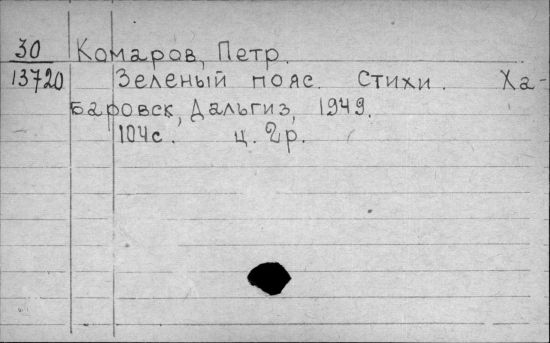 30 Комаров, Петр.
13720 Зеленый пояс. Стихи. Ха-
баровск, Дальгиз, 1949.
104с. ц. 2р.